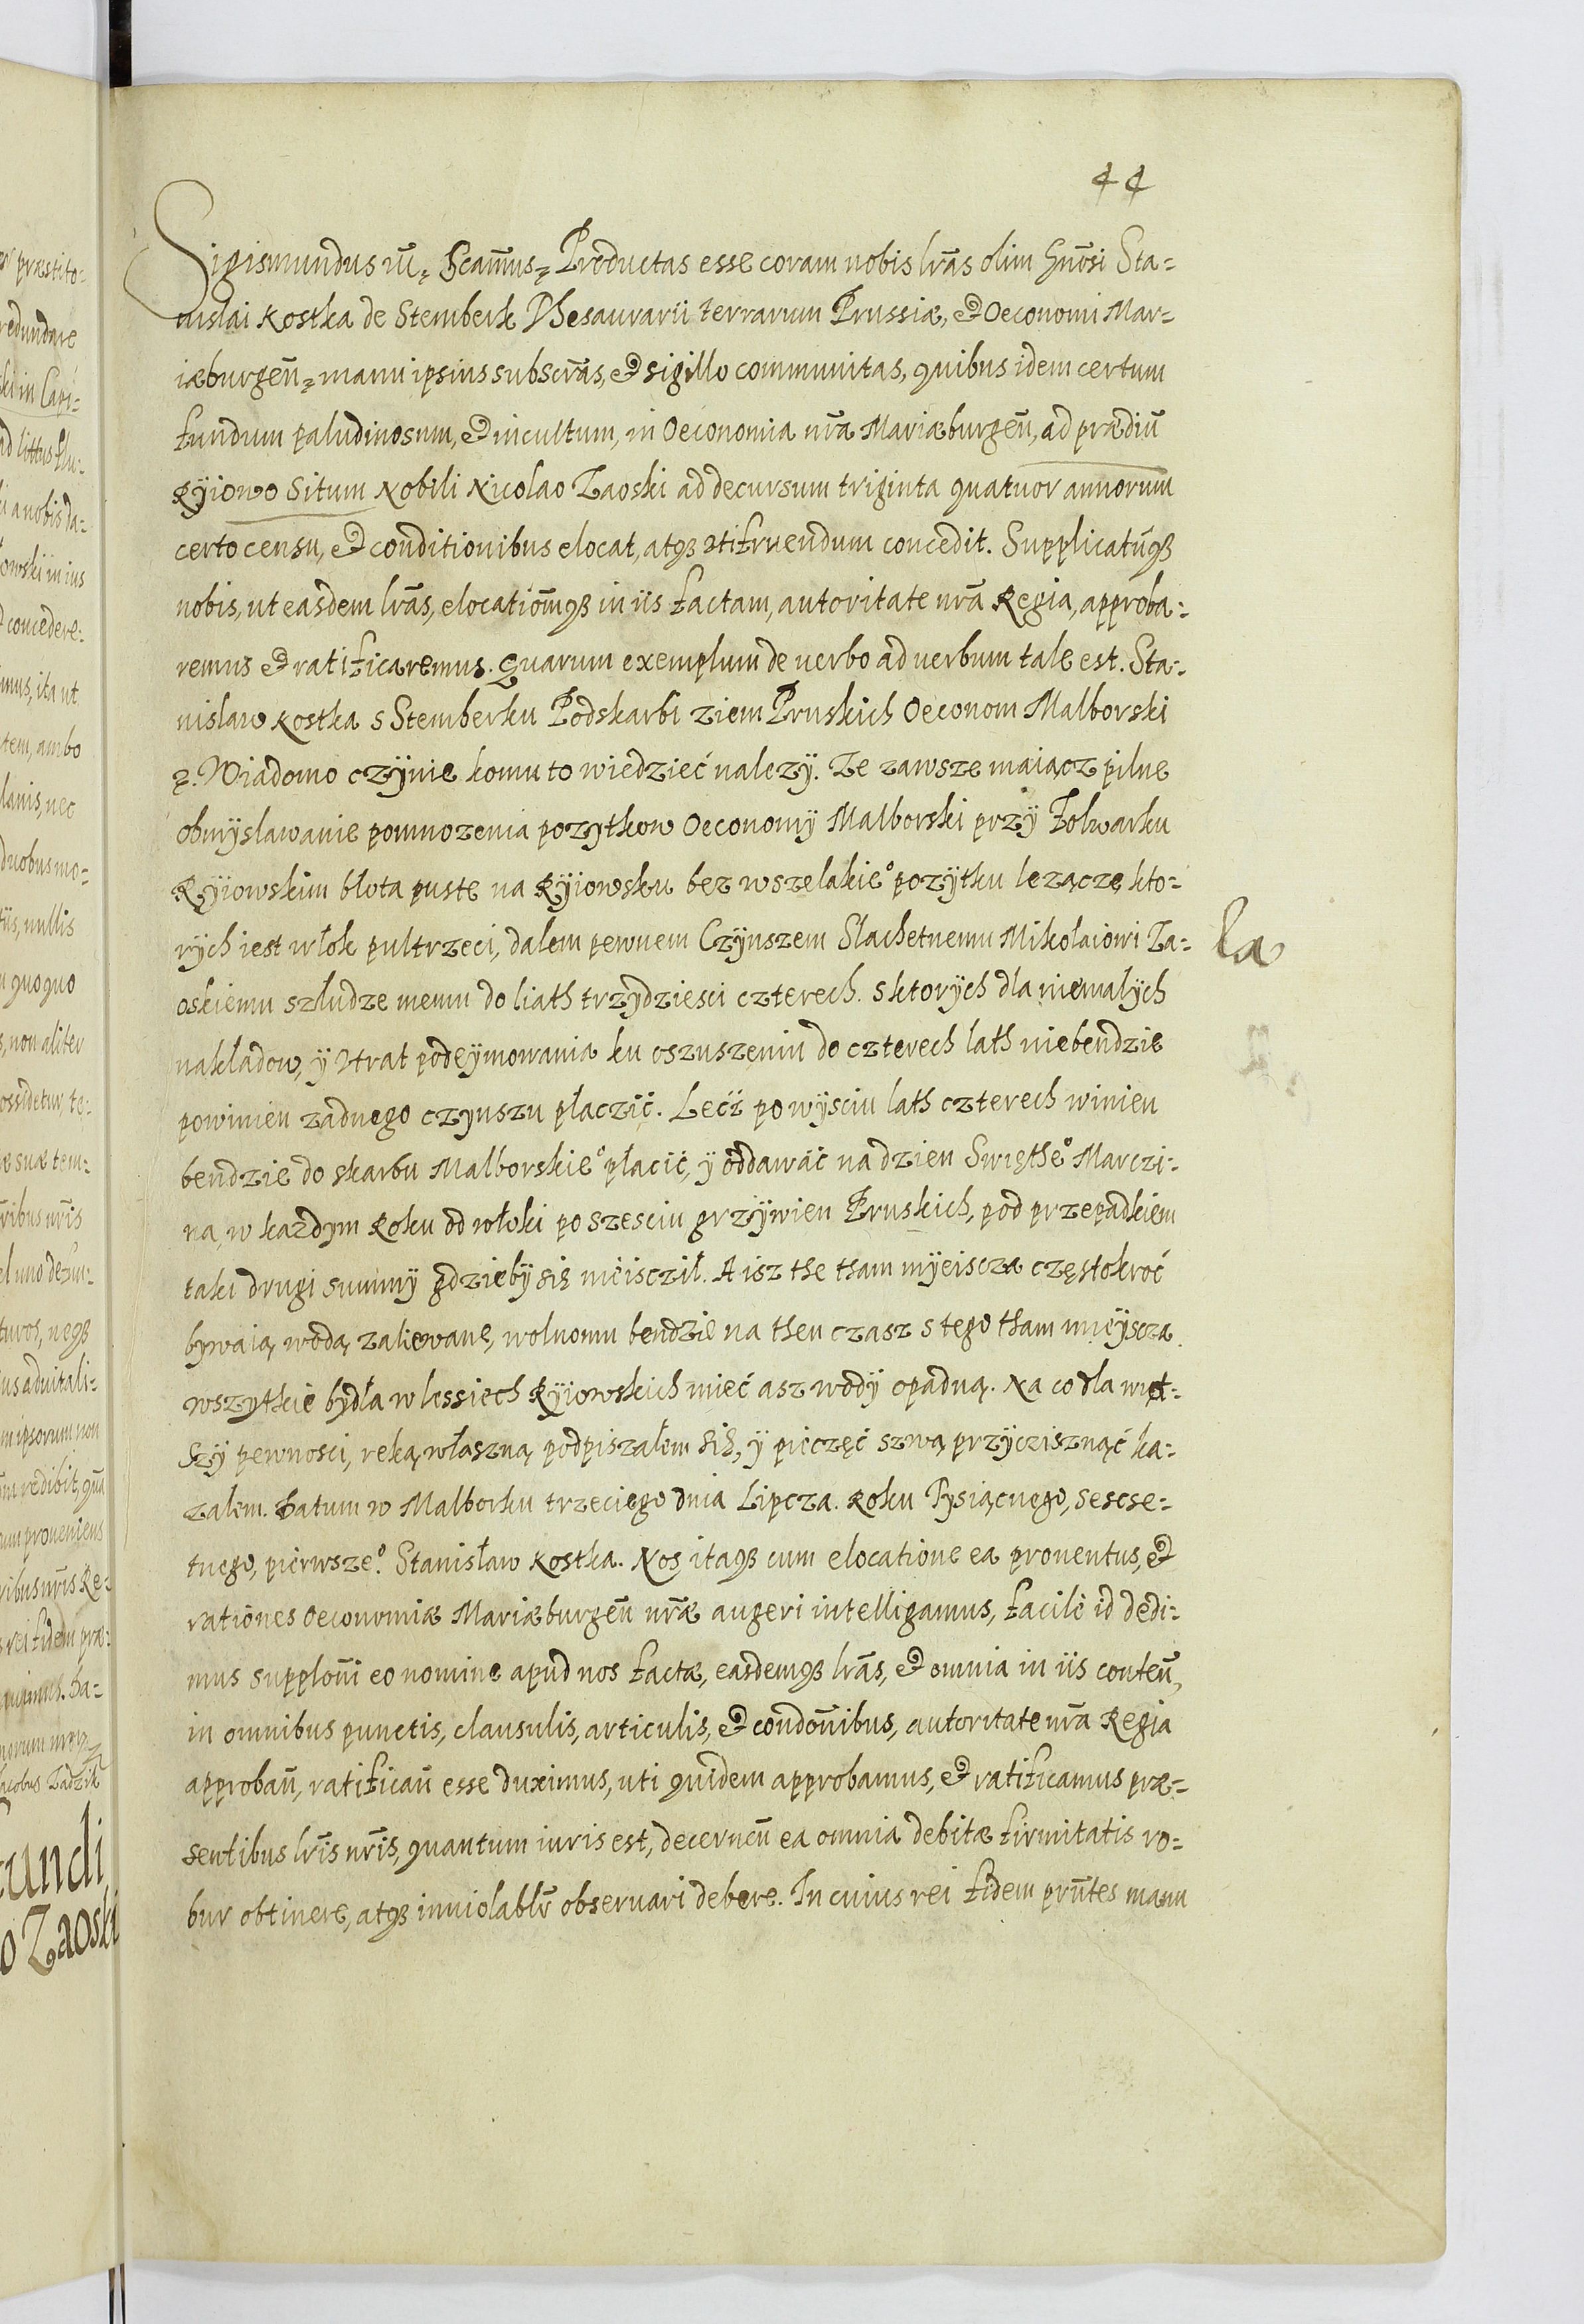 44
Sigismundus III, Scam̃us, Productas esse coram nobis lrãs olim Gnõsi Sta-
nislai Kostka de Stemberk Thesaurarii terrarum Prussiæ, & Oeconomi Mar-
iæburgeñ, manu ipsius subscr̃as, & sigillo communitas, quibus idem certum
fundum paludinosum, & incultum, in Oeconomia nr̃a Mariæburgeñ, ad prædiũ
Kÿiowo situm Nobili Nicolao Zaoski ad decursum triginta quatuor annorum
certo censu, & conditionibus elocat, atqȝ utifruendum concedit. Supplicatũqȝ
nobis, ut easdem lrãs, elocatiom̃qȝ in iis factam, autoritate nr̃a Regia, approba-
remus & ratificaremus. Quarum exemplum de verbo ad verbum tale est. Sta-
nislaw Kostka s Stemberku Podskarbi ziem Pruskich Oeconom Malborski
Wiadomo czÿnie komu to wiedzieć nalezÿ. Ze zawsze maiącz pilne
obmÿslawanie pomnozenia pozytkow Oeconomÿ Malborski przÿ Folwarku
Kÿiowskim błota puste na Kÿiowsku bez wszelakie° pozÿtku lezącze kto-
rÿch iest włok pultrzeci, dalem pewnem Czÿnszem Slachetnemu Mikołaiowi Za-
oskiemu szłudze memu do liath trzydziesci czterech. s ktorÿch dla niemalÿch
nakładow, ÿ utrat podeÿmowania ku oszuszeniu do czterech lath niebendzie
powinien zadnego czynszu płaczić. Lecż po wÿsciu lath czterech winien
bendzie do skarbu Malborskie° płacić, ÿ oddawać na dzien Swięthe° Marczi-
na, w kazdym Roku od włoki po szesciu grzÿwien Pruskich, pod przepadkiem
taki drugi summÿ gdziebÿ się nieiscził. A isz the tham myeiscza częstokroć
bywaią wodą zaliewane, wolnomu bendzie na then czasz s tego tham mieÿscza
wszÿtkie bÿdła w lessiech Kÿiowskich mieć asz wodÿ opadną. Na co dla więt-
szÿ pewnosci, reką właszną podpiszałem się, ÿ pieczęć szwą przycziszńąć ka-
zalem. Datum w Malborku trzeciego dnia Lipcza. Roku Tysiącnego, sescse-
tnego, pierwsze°. Stanisław Kostka. Nos itaqȝ cum elocatione ea proventus, &
rationes Oeconomiæ Mariæburgeñ nr̃æ augeri intelligamus, facile id dedi-
mus supploñi eo nomine apud nos factæ, easdemqȝ lrãs, & omnia in iis conteñ,
in omnibus punctis, clausulis, articulis, & condoñibus, autoritate nr̃a Regia
approbañ, ratificañ esse duximus, uti quidem approbamus, & ratificamus præ-
sentibus lr̃is nr̃is, quantum iuris est, decerneñ ea omnia debitæ firmitatis ro-
bur obtinere, atqȝ inviolablr̃ observari debere. In cuius rei fidem prñtes manu
La